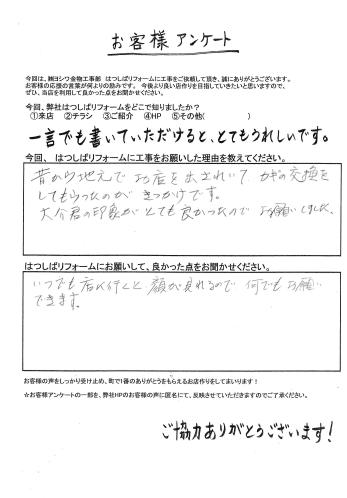 お客様アンケート
今回は、㈱ヨシワ金物工事部　はつしばリフォームに工事をご依頼して頂き、誠にありがとうございます。
お客様の応援の言葉が何よりの励みです。今後より良い店作りを目指していきたいと思いますので、
ぜひ、当店を利用して良かった点をお聞かせください。
今回、弊社はつしばリフォームをどこで知りましたか？
①来店　②チラシ　③ご紹介　④HP　⑤その他(　　　　　)
一言でも書いていただけると、とてもうれしいです。
今回、はつしばリフォームに工事をお願いした理由を教えてください。
昔から地元でお店を出されいて　カギの交換を
してもらったのが　きっかけです。
君の印象がとても良かったので　お願いしました。
はつしばリフォームにお願いして、良かった点をお聞かせください。
いつでも店に行くと　顔が見れるので　何でもお願い
できます。
お客様の声をしっかり受け止め、町で1番のありがとうをもらえるお店作りをしてまいります！
☆お客様アンケートの一部を、弊社HPのお客様の声に匿名にて、反映させていただきますのでご了承ください。
ご協力ありがとうございます！